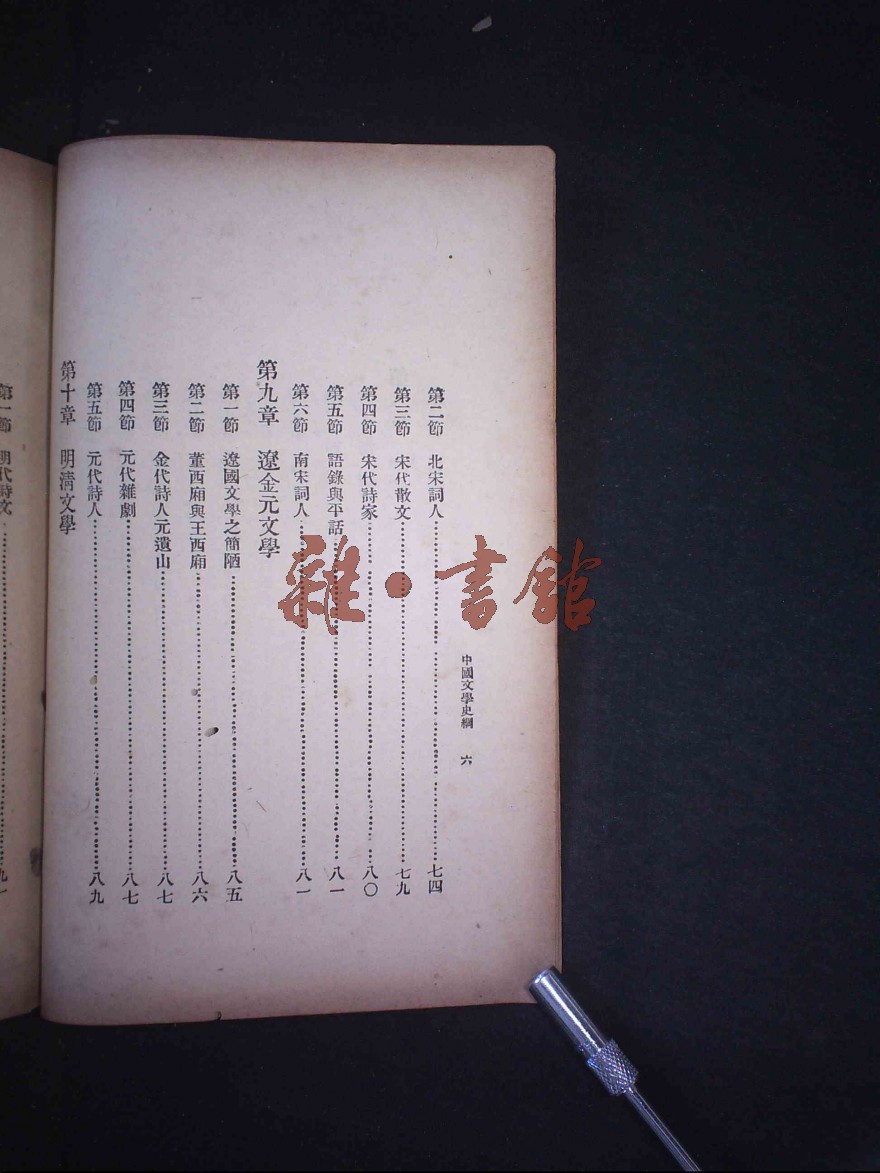 中國文學史綱 六
第二節 北宋詞人……七四
第三節 宋代散文……七九
第四節 宋代詩家……八〇
第五節 語錄與平話……八一
第六節 南宋詞人……八一
第九章 遼金元文學
第一節 遼國文學之簡陋……八五
第二節 董西廂與王西廂……八六
第三節 金代詩人元遺山……八七
第四節 元代雜劇……八七
第五節 元代詩人……八九
第十章 明清文學
第一節 明代詩文……九一
雜·書館